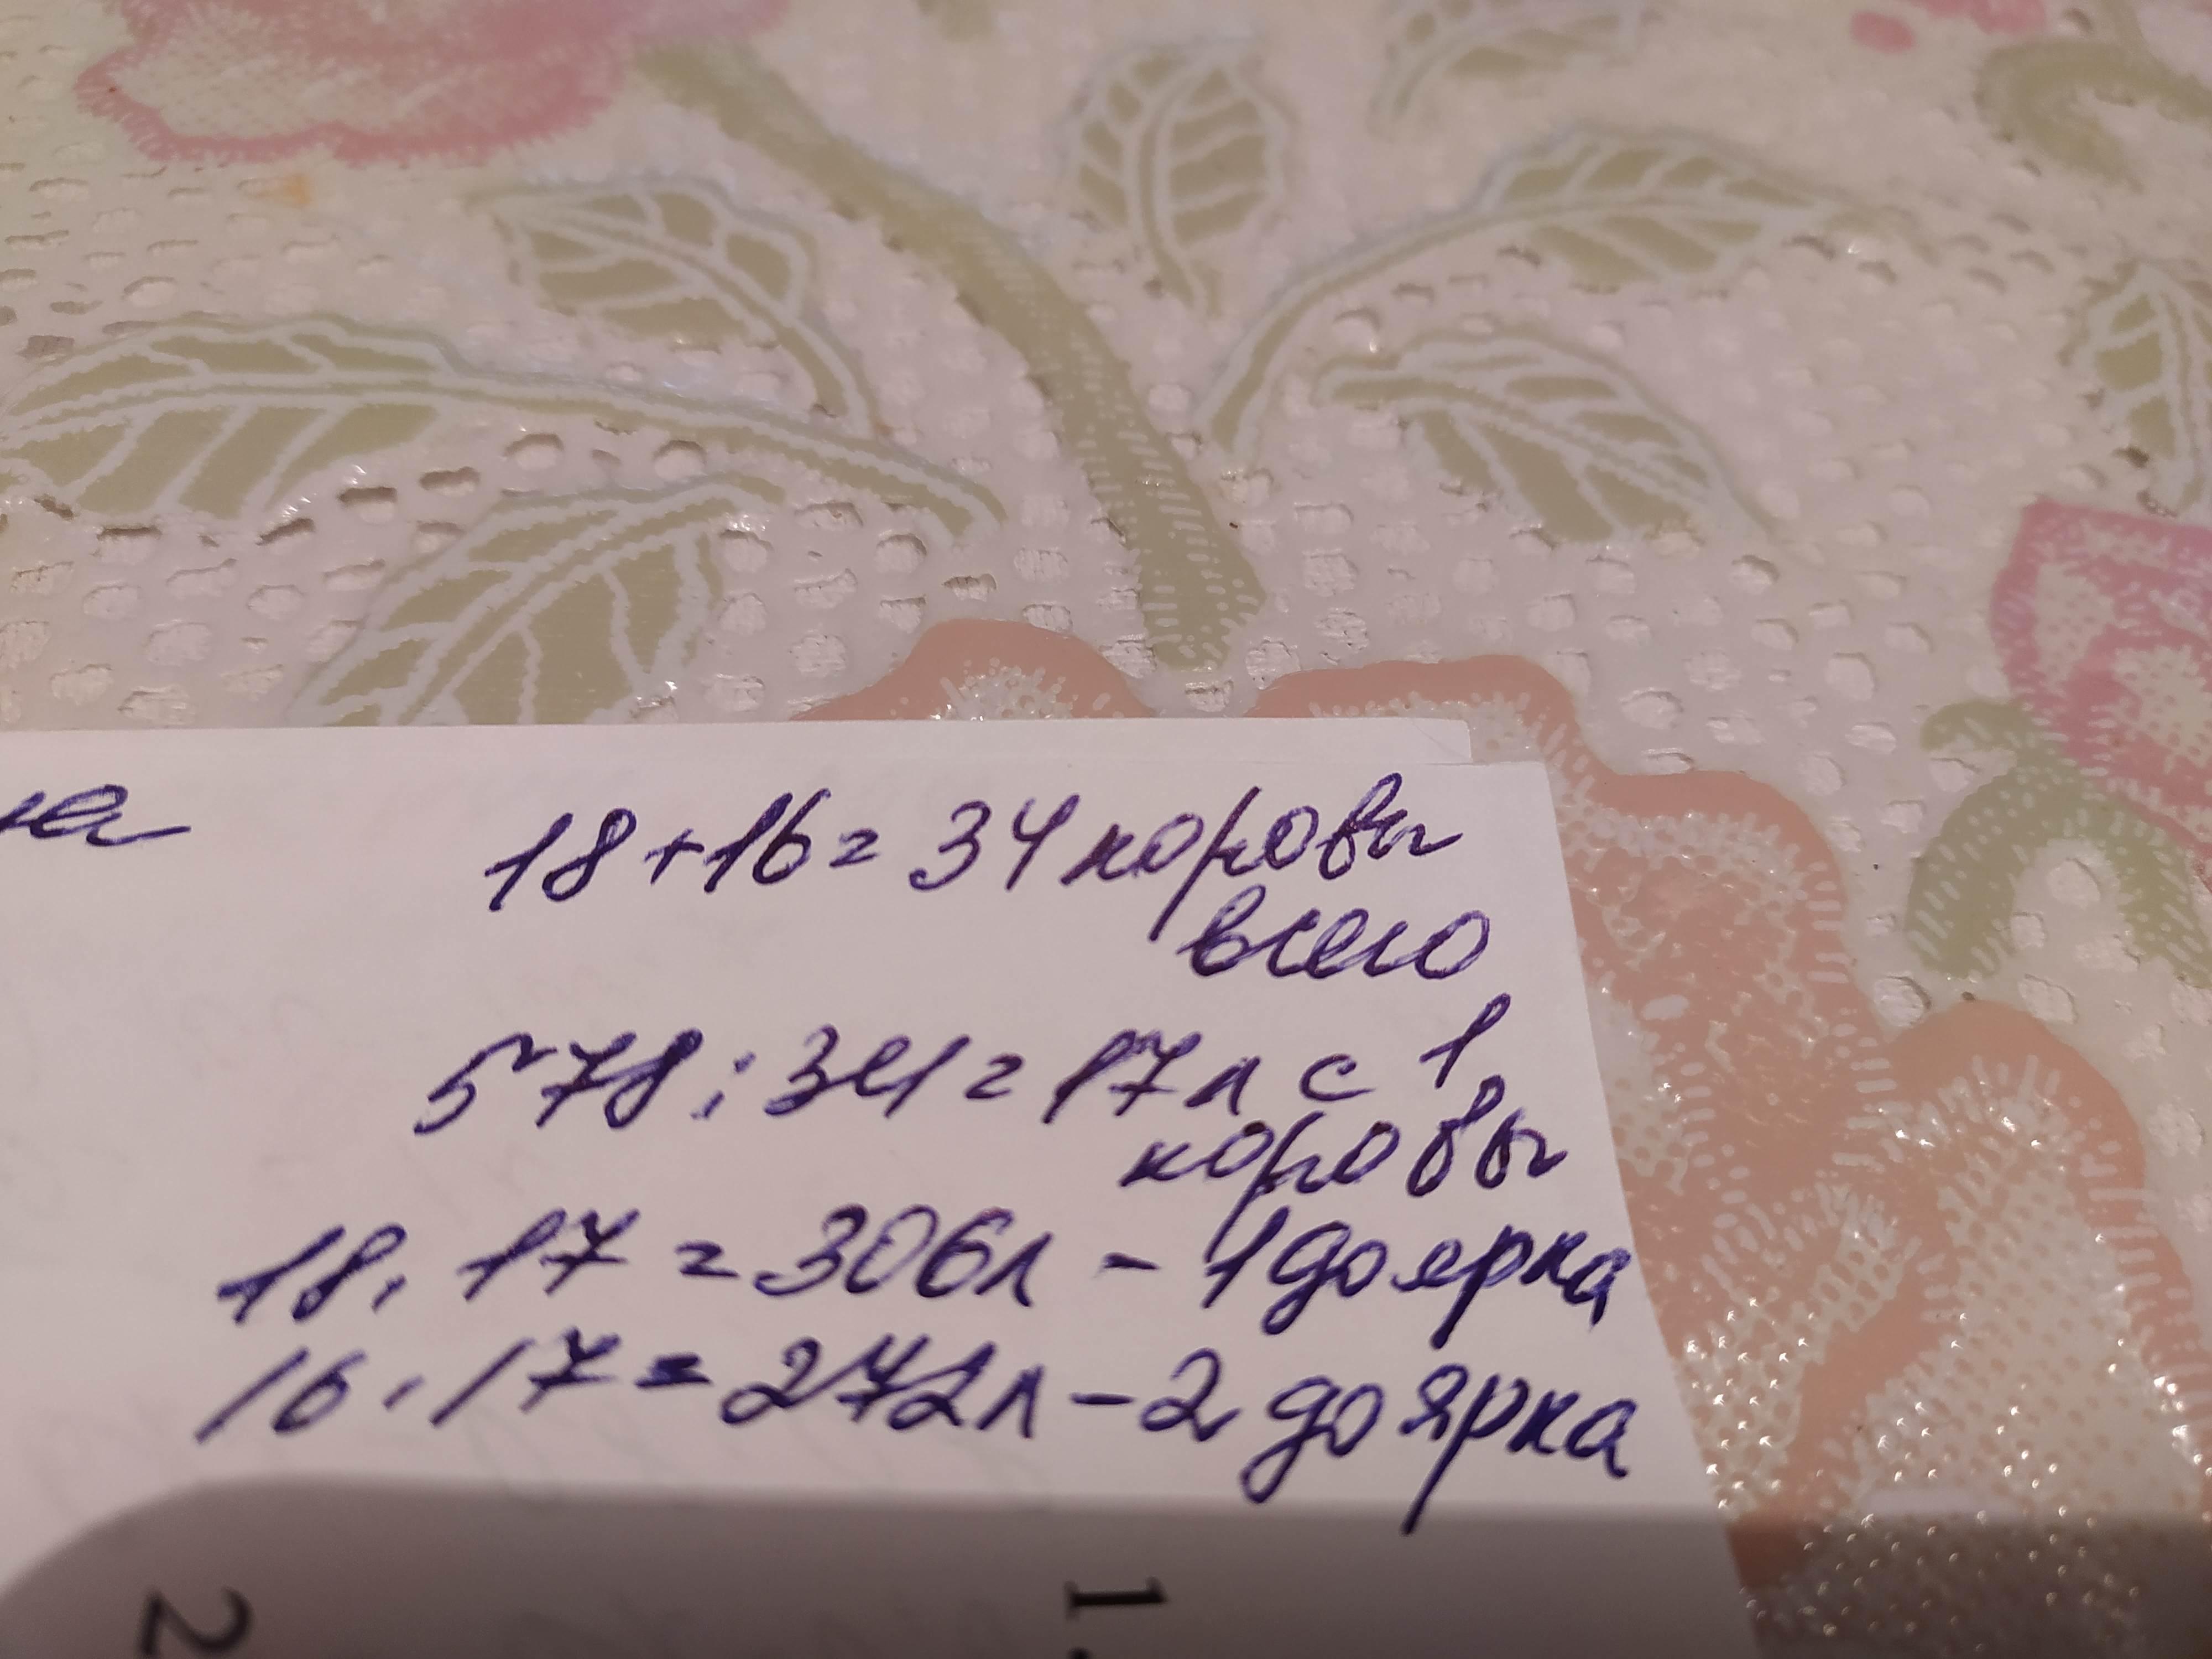 18+16= 34 коровы
всего
578:34=17л с 1
коровы
18. 17 = 306л - 1 доярка
16. 17 = 272л - 2 доярка
2
1.